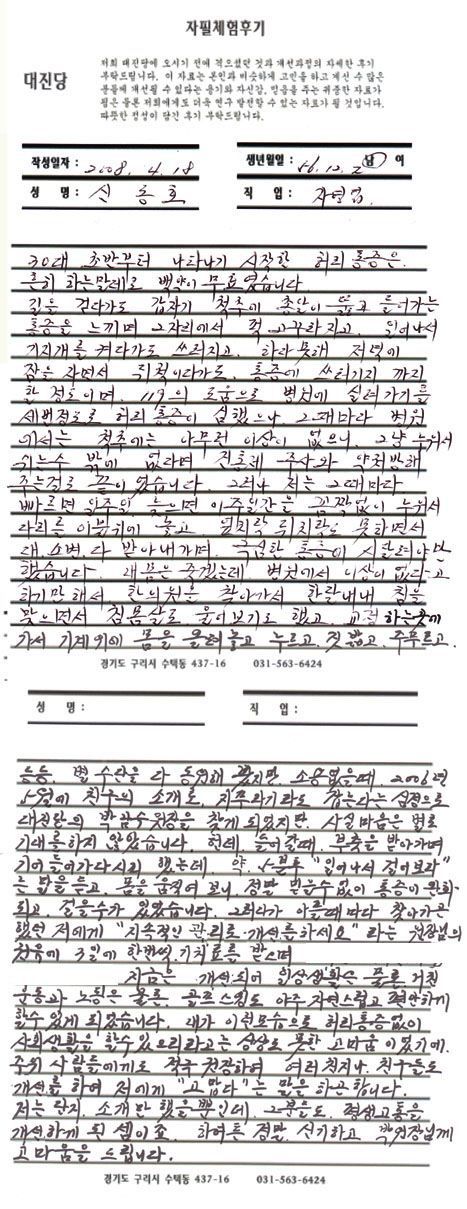 자필체험후기
대진당
저희 대진당에 오시기 전에 겪으셨던 것과 개선과정의 자세한 후기
부탁드립니다. 이 자료는 본인과 비슷하게 고민을 하고 계신 수 많은
분들께 개선될 수 있다는 용기와 자신감, 믿음을 주는 귀중한 자료가
됨은 물론 저희에게도 더욱 연구 발전할 수 있는 자료가 될 것입니다.
따뜻한 정성이 담긴 후기 부탁드립니다.
작성일자 : 2008. 4. 18 생년월일 : 56.12.2 남 여
성 명 : 신동호 직 업 : 자영업
30대 초반부터 나타나기 시작한 허리 통증은
흔히 하는말데로 백약이 무효였습니다
길을 걷다가도 갑자기 척추에 총알이 뚫고 들어가는
통증을 느끼며 그자리에서 꺽 고꾸라지고, 일어나서
기지개를 켜다가도 쓰러지고, 하다못해 저녁에
잠을 자면서 뒤척이다가도 통증에 쓰러지기 까지
한 정도이며, 119의 도움으로 병원에 실려가기를
세번정도로 허리통증이 심했으나 그때마다 병원
에서는 척추에는 아무런 이상이 없으니 그냥 누워서
쉬는수 밖에 없다며 진통제 주사와 약처방해
주는걸로 끝이었습니다. 그러나 저는 그때마다
빠르면 일주일, 늦으면 이주일간을 꼼짝없이 누워서
다리를 이불위에 놓고 엎치락 뒤치락도 못하면서
대.소변 다 받아내가며, 극심한 통증에 시달려야만
했습니다. 내몸은 죽겠는데 병원에서 이상이 없다고
하기만해서 한의원을 찾아가서 한달내내 침을
맞으면서 침몸살로 울어보기도 했고, 교정하는곳에
가서 기계위에 몸을 올려놓고 누르고, 짓밟고, 주무르고,
경기도 구리시 수택동 437-16 031-563-6424
성 명 : 직 업 :
등등, 별 수단을 다 동원해 봤지만 소용없을때, 2006년
5월에 친구의 소개로, 지푸라기라도 잡는다는 심정으로
대진당의 박 원장을 찾게 되었지만 사실 마음은 별로
기대를 하지 않았습니다. 헌데, 들어갈때 부축을 받아가며
기어들어가다시피 했는데, 약 5분후 "일어나서 걸어보라"
는 말을 듣고, 몸을 움직여 보니, 정말 믿을수 없이 통증이 완화
되고, 걸을수가 있었습니다. 그러다가 아플때마다 찾아가곤
했던 저에게 "지속적인 관리로 개선를하세요" 라는 원장님의
처유에 3일에 한번씩 기치료를 받으며
지금은 개선되어 일상생활은 물론 거친
운동과 노동은 물론, 골프스윙도 아주 자연스럽고 편안하게
할수 있게 되었습니다. 내가 이런모습으로 허리통증없이
사회생활을 할수 있으리라고는 상상도 못한 고마움이었기에,
주위 사람들에게도 적극 권장하며 여러 친지나 친구들도
개선를 하여 저에게 "고맙다"는 말을 하곤합니다.
저는 단지, 소개만 했을뿐인데, 그분들도, 평생고통을
개선하게 된 셈이죠. 하여튼 정말 신기하고 박원장님께
고마움을 드립니다.
경기도 구리시 수택동 437-16 031-563-6424